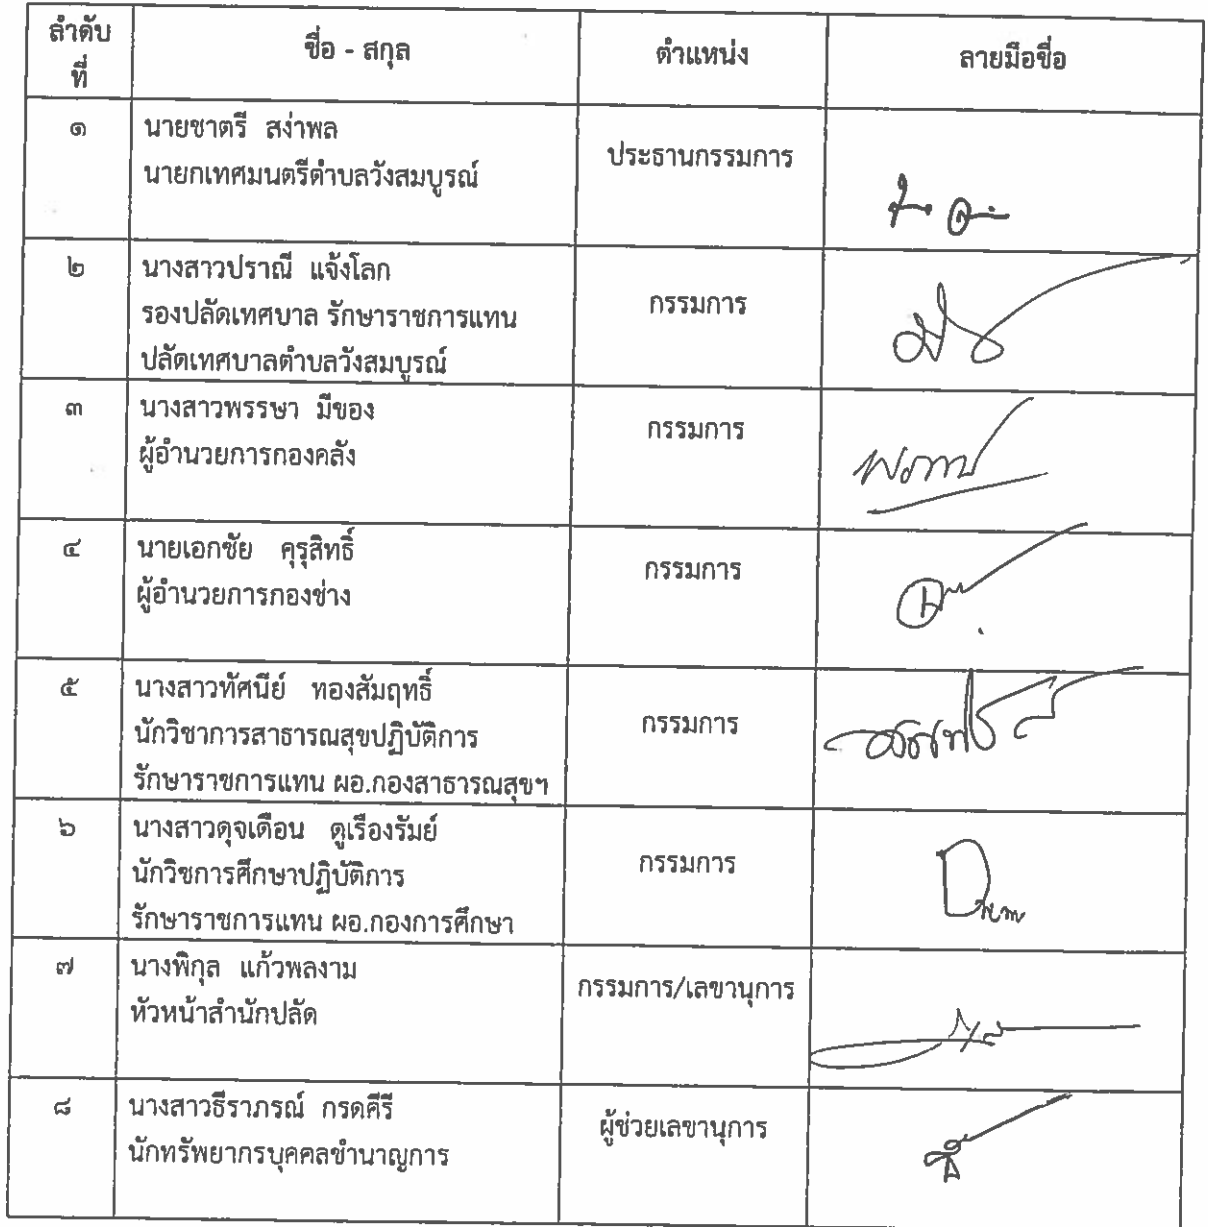 ลำดับ
ที่
ชื่อ - สกุล
ตำแหน่ง
ลายมือชื่อ
๑
นายชาตรี สง่าพล
นายกเทศมนตรีตำบลวังสมบูรณ์
ประธานกรรมการ
๒
นางสาวปราณี แจ้งโลก
รองปลัดเทศบาล รักษาราชการแทน
ปลัดเทศบาลตำบลวังสมบูรณ์
กรรมการ
๓
นางสาวพรรษา มีของ
ผู้อำนวยการกองคลัง
กรรมการ
๔
นายเอกชัย คุรุสิทธิ์
ผู้อำนวยการกองช่าง
กรรมการ
๕
นางสาวทัศนีย์ ทองสัมฤทธิ์
นักวิชาการสาธารณสุขปฏิบัติการ
รักษาราชการแทน ผอ.กองสาธารณสุขฯ
กรรมการ
๖
นางสาวดุจเดือน ดูเรืองรัมย์
นักวิชการศึกษาปฏิบัติการ
รักษาราชการแทน ผอ.กองการศึกษา
กรรมการ
๗
นางพิกุล แก้วพลงาม
หัวหน้าสำนักปลัด
กรรมการ/เลขานุการ
๘
นางสาวธีราภรณ์ กรดคีรี
นักทรัพยากรบุคคลชำนาญการ
ผู้ช่วยเลขานุการ